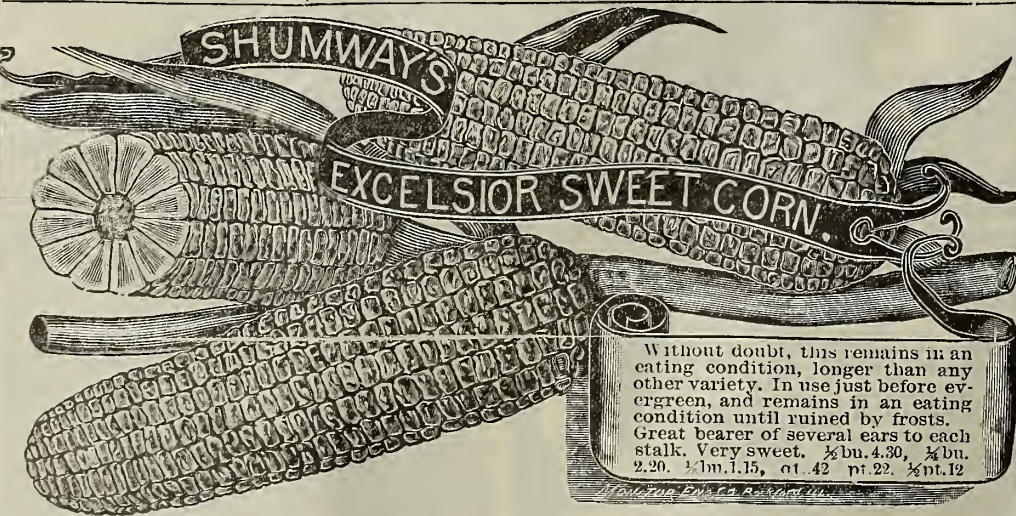 SHUMWAY'S
EXCELSIOR SWEET CORN.
Without doubt, this remains in an
eating condition, longer than any
other variety. In use just before ev-
ergreen, and remains in an eating
condition until ruined by frosts.
Great bearer of several ears to each
stalk. Very sweet. ½bu. 4.30, ¼bu.
2.20. ⅛bu. 1.15, qt. .42 pt. 22. ½pt. 12
MONITOR ENG CO Rockford Ill.